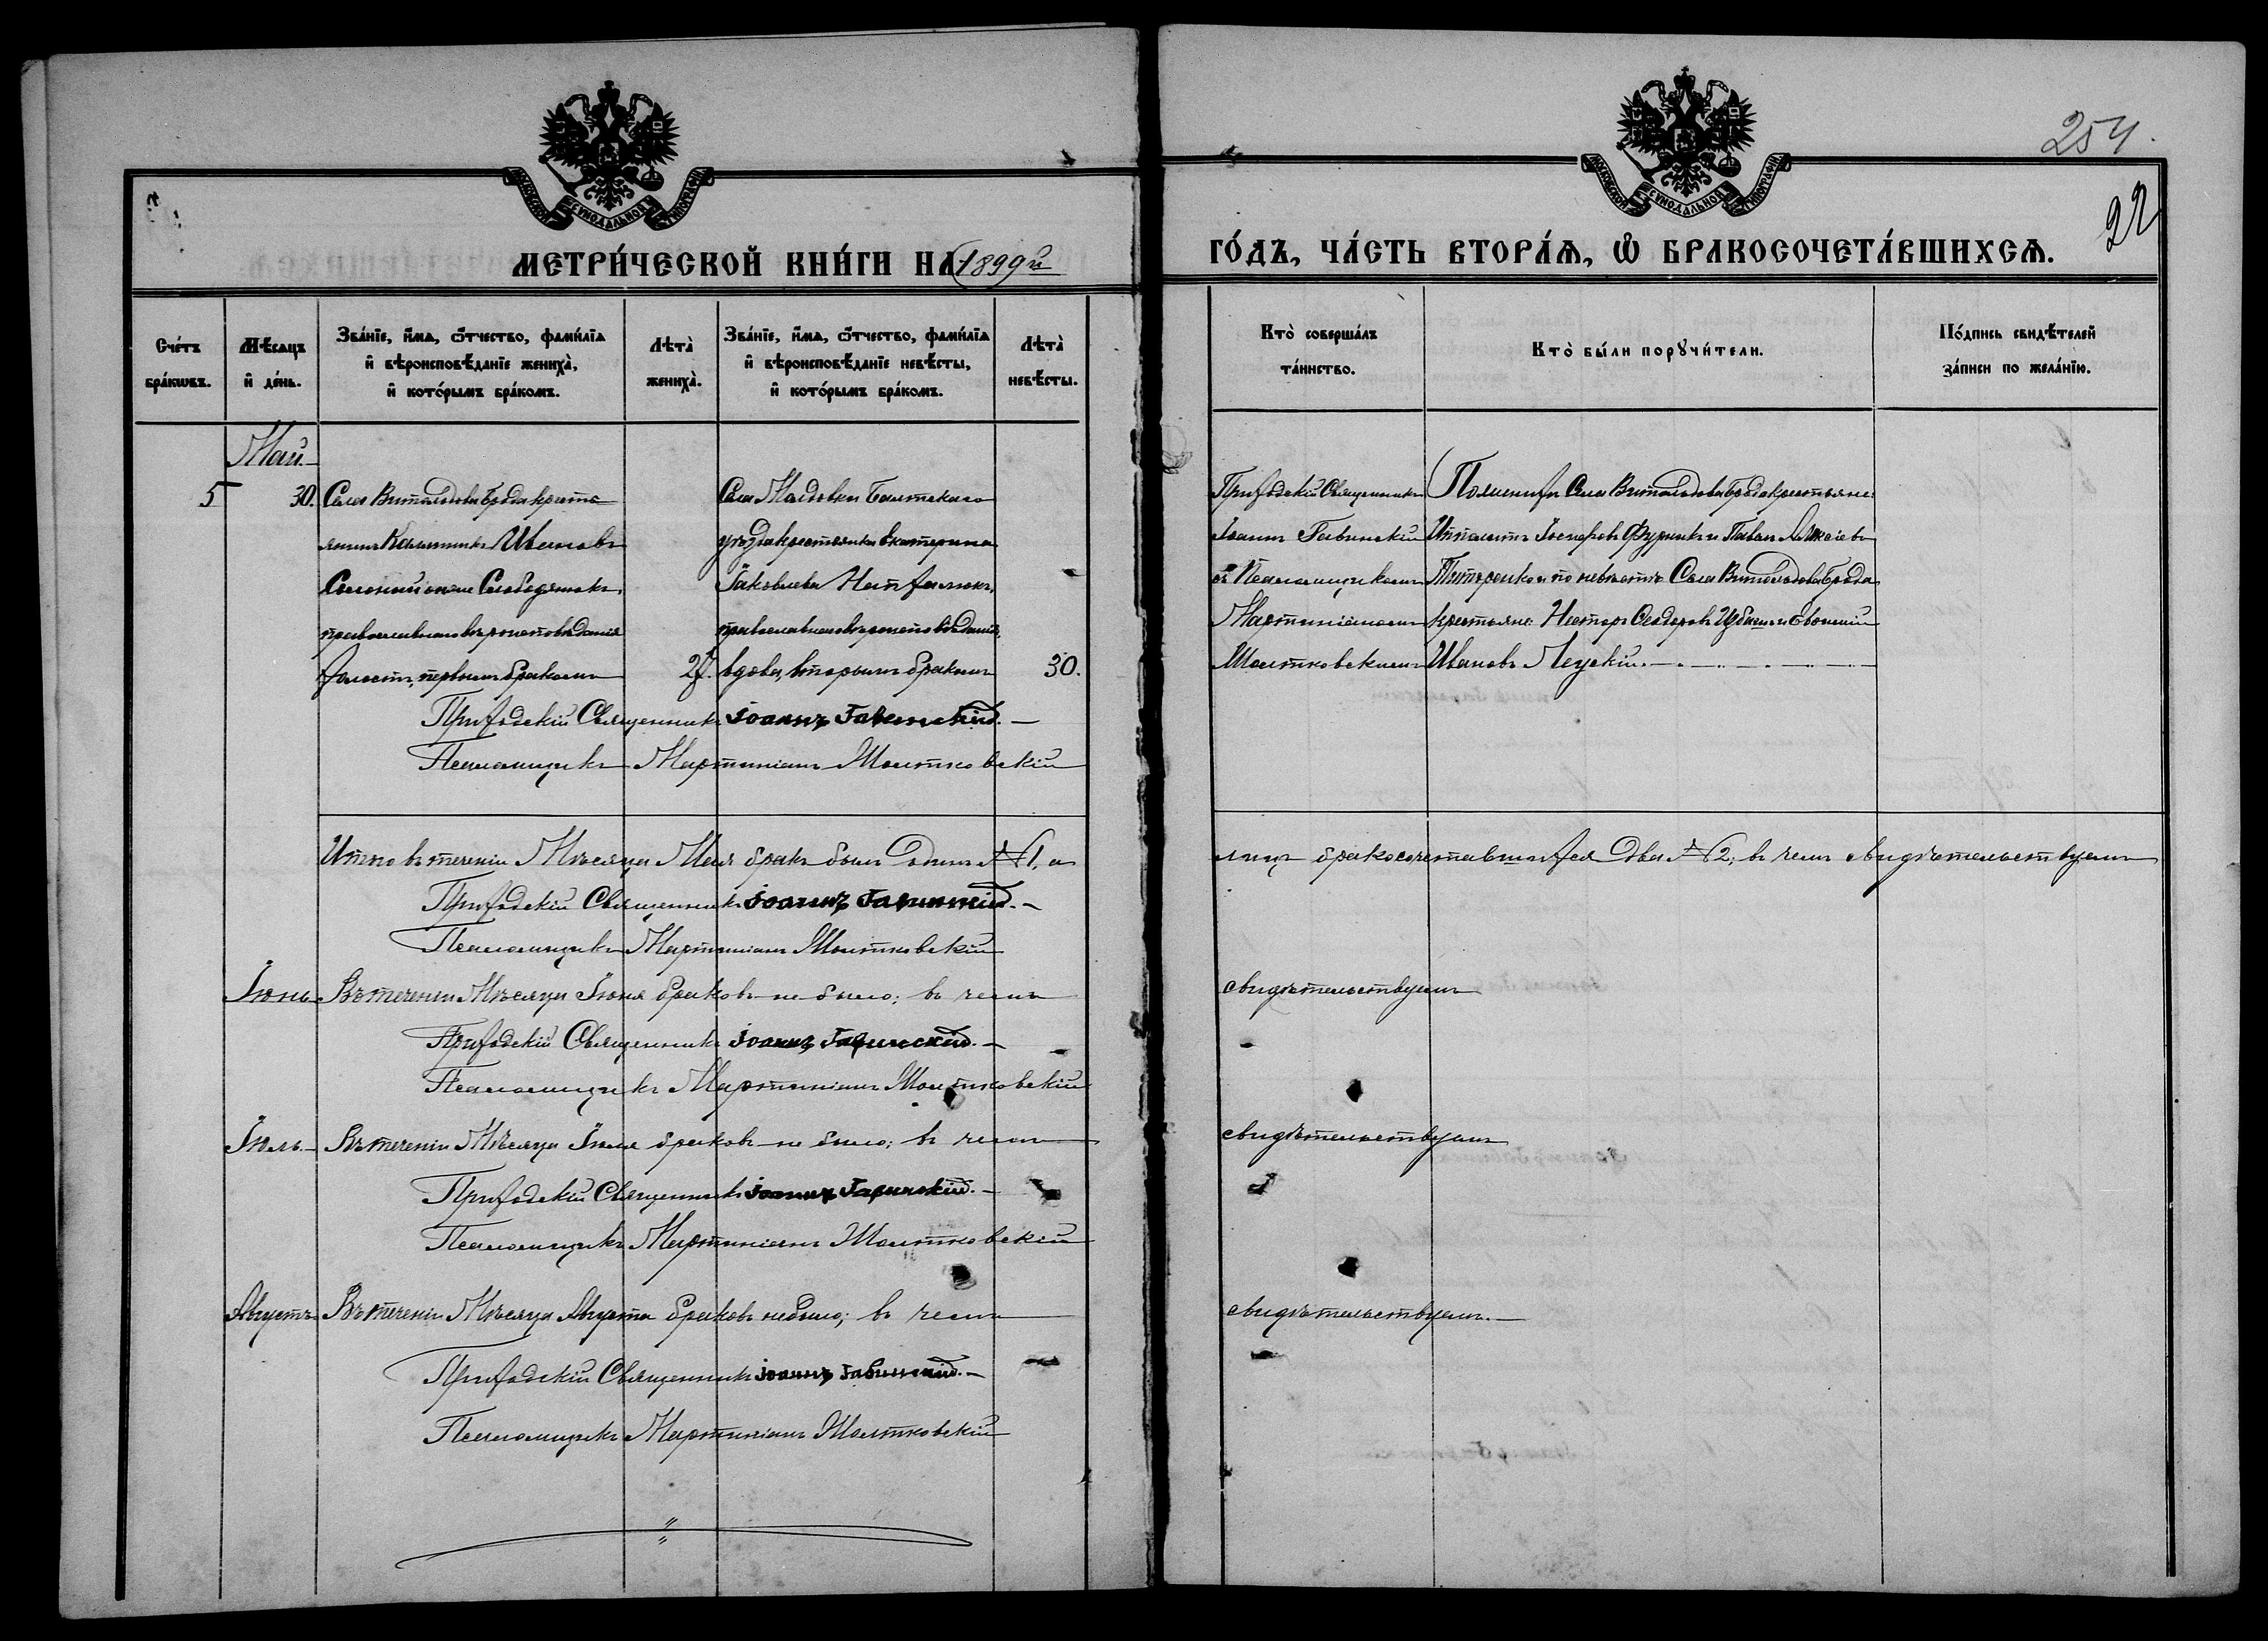 254.
22
МОСКОВСКОЙ СѴНОДАЛЬНОЙ ТИПОГРАФІИ
МОСКОВСКОЙ СѴНОДАЛЬНОЙ ТИПОГРАФІИ
МЕТРИ́ЧЕСКОЙ КНИ́ГИ НА 1899й
ГО́ДЪ, ЧА́СТЬ ВТОРА́Ѧ, Ѡ҆ БРАКОСОЧЕТА́ВШИХСѦ.
Сче́тъ бра́кѡвъ.
Мѣ́сѧцъ и҆ де́нь.
Зва́нїе, и҆́мѧ, ѻ҆́тчество, фами́лїѧ
и҆ вѣроисповѣ́данїе жениха̀,
и҆ кото́рымъ бра́комъ.
Лѣта̀ жениха̀.
Зва́нїе, и҆́мѧ, ѻ҆́тчество, фами́лїѧ
и҆ вѣроисповѣ́данїе невѣ́сты,
и҆ кото́рымъ бра́комъ.
Лѣта̀ невѣ́сты.
Кто̀ соверша́лъ
та́инство.
Кто̀ бы́ли порꙋчи́тели.
По́дпись свидѣ́телей
за́писи по жела́нїю.
Май.
5
30.
Села Витольдова Брода кресть
янинъ Каллиникъ Ивановъ
Слободянюкъ,
православнаго вѣроисповѣданія
холостъ, первымъ бракомъ
27.
Села Балтскаго
уѣзда крестьянка Екатерина
Іаковлева
православнаго вѣроисповѣданія,
вдова, вторымъ бракомъ
30.
Приходскій Священникъ
Іоаннъ Гавинскій
съ Псаломщикомъ
Мартиніаномъ
Шолтковскимъ
По женихѣ Села Витольдова Брода крестьяне:
Ипполитъ Іосифовъ Фурникъ и Павелъ
по невѣстѣ Села Витольдова Брода
крестьяне: Несторъ Ѳеодоровъ и Евѳимій
Ивановъ
Приходскій Священникъ Іоаннъ Гавинскій. —
Псаломщикъ Мартиніанъ Шолтковскій
Итого въ теченіи Мѣсяца Мая бракъ былъ одинъ № 1, а
лицъ бракосочетавшихся два № 2, въ чемъ свидѣтельствуемъ
Приходскій Священникъ Іоаннъ Гавинскій. —
Псаломщикъ Мартиніанъ Шолтковскій
Іюнь. Въ теченіи Мѣсяца Іюня браковъ не было; въ чемъ
свидѣтельствуемъ
Приходскій Священникъ Іоаннъ Гавинскій. —
Псаломщикъ Мартиніанъ Шолтковскій
Іюль. — Въ теченіи Мѣсяца Іюля браковъ не было; въ чемъ
свидѣтельствуемъ
Приходскій Священникъ Іоаннъ Гавинскій. —
Псаломщикъ Мартиніанъ Шолтковскій
Августъ Въ теченіи Мѣсяца Августа браковъ небыло; въ чемъ
свидѣтельствуемъ. —
Приходскій Священникъ Іоаннъ Гавинскій. —
Псаломщикъ Мартиніанъ Шолтковскій